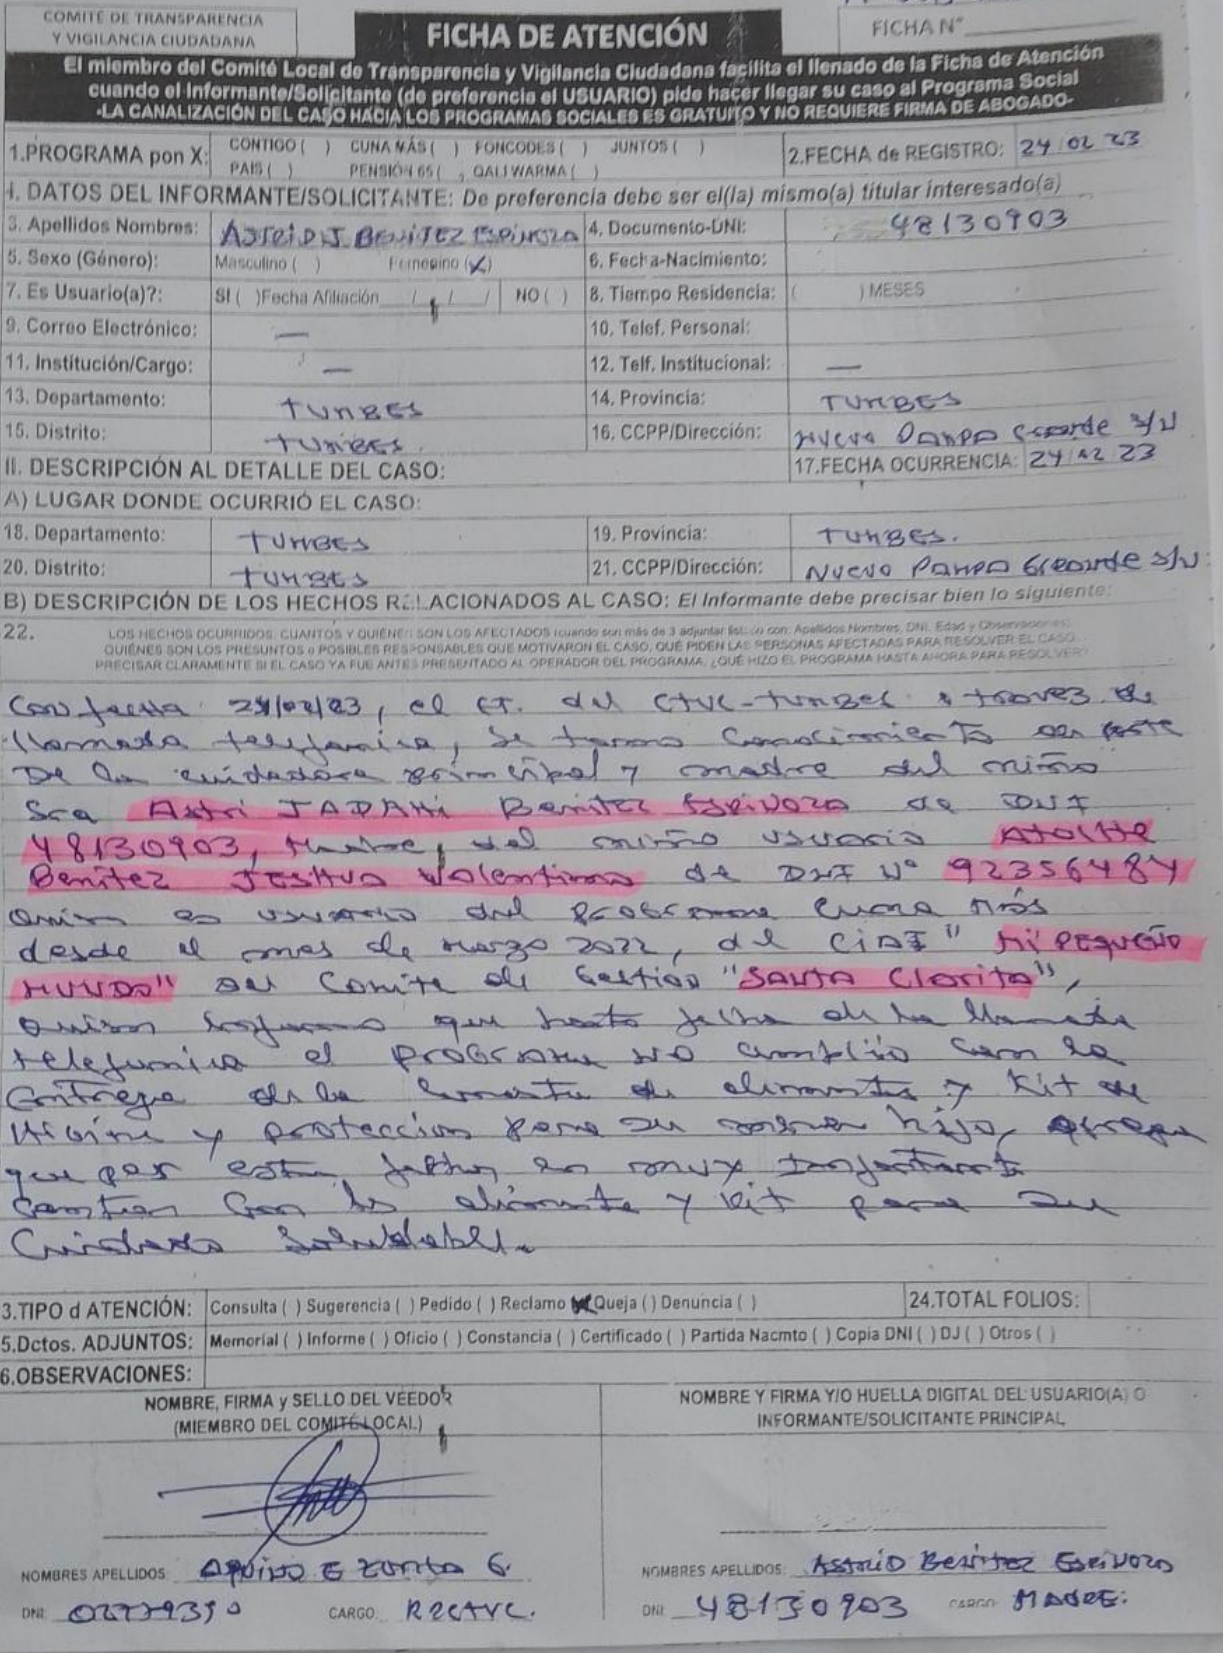 COMITÉ DE TRANSPARENCIA
Y VIGILANCIA CIUDADANA
FICHA DE ATENCIÓN
FICHA N°
El miembro del Comité Local de Transparencia y Vigilancia Ciudadana facilita el llenado de la Ficha de Atención
cuando el Informante/Solicitante (de preferencia el USUARIO) pide hacer llegar su caso al Programa Social
-LA CANALIZACIÓN DEL CASO HACIA LOS PROGRAMAS SOCIALES ES GRATUITO Y NO REQUIERE FIRMA DE ABOGADO-
1.PROGRAMA pon X: CONTIGO ( ) CUNA MÁS ( ) FONCODES ( ) JUNTOS ( )
PAIS ( ) PENSIÓN 65 ( ) QALI WARMA ( )
2.FECHA de REGISTRO: 24 02 23
I. DATOS DEL INFORMANTE/SOLICITANTE: De preferencia debe ser el(la) mismo(a) titular interesado(a)
3. Apellidos Nombres: ASTRID J BENITEZ ESPINOZA 4. Documento-DNI: 48130903
5. Sexo (Género): Masculino ( ) Femenino (X) 6. Fecha-Nacimiento:
7. Es Usuario(a)?: SI ( ) Fecha Afiliación / / NO ( ) 8. Tiempo Residencia: ( ) MESES
9. Correo Electrónico: — 10. Telef. Personal:
11. Institución/Cargo: — 12. Telf. Institucional: —
13. Departamento: TUMBES 14. Provincia: TUMBES
15. Distrito: TUMBES. 16. CCPP/Dirección: Nueva Pampa Grande S/N
II. DESCRIPCIÓN AL DETALLE DEL CASO: 17.FECHA OCURRENCIA: 24 02 23
A) LUGAR DONDE OCURRIÓ EL CASO:
18. Departamento: TUMBES 19. Provincia: TUMBES.
20. Distrito: TUMBES 21. CCPP/Dirección: Nuevo Pampa Grande S/N
B) DESCRIPCIÓN DE LOS HECHOS RELACIONADOS AL CASO: El Informante debe precisar bien lo siguiente:
22. LOS HECHOS OCURRIDOS, CUANTOS Y QUIÉNES SON LOS AFECTADOS (cuando son más de 3 adjuntar listado con: Apellidos Nombres, DNI, Edad y Observaciones)
QUIÉNES SON LOS PRESUNTOS o POSIBLES RESPONSABLES QUE MOTIVARON EL CASO, QUÉ PIDEN LAS PERSONAS AFECTADAS PARA RESOLVER EL CASO
PRECISAR CLARAMENTE SI EL CASO YA FUE ANTES PRESENTADO AL OPERADOR DEL PROGRAMA, ¿QUÉ HIZO EL PROGRAMA HASTA AHORA PARA RESOLVER?
Con fecha 24/02/23, el CT. del CTVC-Tumbes a travez de
llamada telefonica, se tomo conocimiento por parte
De la cuidadora principal y madre del niño
Sra Astri JADAHI Benitez Espinoza de DNI
48130903, Madre, del niño usuario
Benitez Jeshua Valentino de DNI N° 92356484
quien es usuario del programa Cuna Más
desde el mes de marzo 2022, del CIAI " Mi PEQUEÑO
MUNDO" del Comite de Gestion "SANTA Clarita",
quien informa que hasta fecha de la llamada
telefonica el programa no cumplio con la
entrega de la canasta de alimentos y Kit de
Higiene y proteccion para su menor hijo, agrega
que por estas fechas es muy importante
contar con los alimentos y kit para su
Cuidado Saludable.
3.TIPO d ATENCIÓN: Consulta ( ) Sugerencia ( ) Pedido ( ) Reclamo (X) Queja ( ) Denuncia ( ) 24.TOTAL FOLIOS:
5.Dctos. ADJUNTOS: Memorial ( ) Informe ( ) Oficio ( ) Constancia ( ) Certificado ( ) Partida Nacmto ( ) Copia DNI ( ) DJ ( ) Otros ( )
6.OBSERVACIONES:
NOMBRE, FIRMA y SELLO DEL VEEDOR
(MIEMBRO DEL COMITÉ LOCAL)
NOMBRE Y FIRMA Y/O HUELLA DIGITAL DEL USUARIO(A) O
INFORMANTE/SOLICITANTE PRINCIPAL
NOMBRES APELLIDOS E G.
NOMBRES APELLIDOS: Astrid Benitez Espinoza
DNI: CARGO:
DNI: 48130903 CARGO: MADRE.